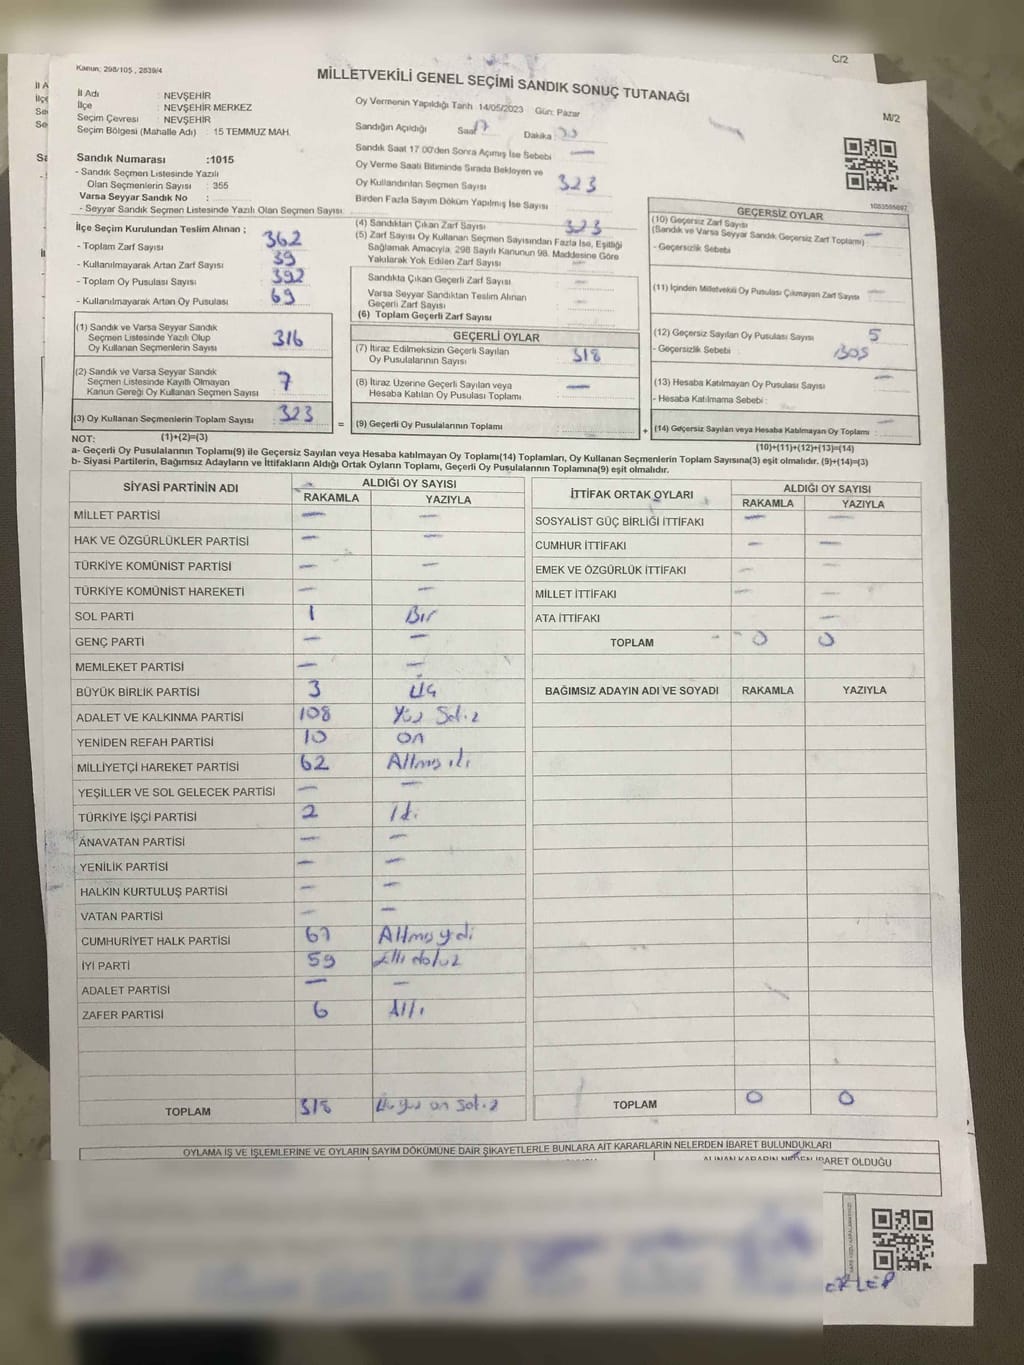 Kanun; 298/105 , 2839/4
C/2
MİLLETVEKİLİ GENEL SEÇİMİ SANDIK SONUÇ TUTANAĞI
M/2
İl Adı : NEVŞEHİR
İlçe : NEVŞEHİR MERKEZ
Seçim Çevresi : NEVŞEHİR
Seçim Bölgesi (Mahalle Adı) : 15 TEMMUZ MAH.
Sandık Numarası :1015
- Sandık Seçmen Listesinde Yazılı
Olan Seçmenlerin Sayısı : 355
Varsa Seyyar Sandık No :
- Seyyar Sandık Seçmen Listesinde Yazılı Olan Seçmen Sayısı:
İlçe Seçim Kurulundan Teslim Alınan ;
- Toplam Zarf Sayısı 362
- Kullanılmayarak Artan Zarf Sayısı 39
- Toplam Oy Pusulası Sayısı 392
- Kullanılmayarak Artan Oy Pusulası 69
(1) Sandık ve Varsa Seyyar Sandık
Seçmen Listesinde Yazılı Olup
Oy Kullanan Seçmenlerin Sayısı 316
(2) Sandık ve Varsa Seyyar Sandık
Seçmen Listesinde Kayıtlı Olmayan
Kanun Gereği Oy Kullanan Seçmen Sayısı 7
(3) Oy Kullanan Seçmenlerin Toplam Sayısı 323
Oy Vermenin Yapıldığı Tarih 14/05/2023 Gün: Pazar
Sandığın Açıldığı Saat 17 Dakika :
Sandık Saat 17.00'den Sonra Açımış İse Sebebi —
Oy Verme Saati Bitiminde Sırada Bekleyen ve
Oy Kullandırılan Seçmen Sayısı 323
Birden Fazla Sayım Döküm Yapılmış İse Sayısı
(4) Sandıktan Çıkan Zarf Sayısı 323
(5) Zarf Sayısı Oy Kullanan Seçmen Sayısından Fazla İse, Eşitliği
Sağlamak Amacıyla, 298 Sayılı Kanunun 98. Maddesine Göre
Yakılarak Yok Edilen Zarf Sayısı —
Sandıkta Çıkan Geçerli Zarf Sayısı —
Varsa Seyyar Sandıktan Teslim Alınan
Geçerli Zarf Sayısı —
(6) Toplam Geçerli Zarf Sayısı
GEÇERLİ OYLAR
(7) İtiraz Edilmeksizin Geçerli Sayılan
Oy Pusulalarının Sayısı 318
(8) İtiraz Üzerine Geçerli Sayılan veya
Hesaba Katılan Oy Pusulası Toplamı —
= (9) Geçerli Oy Pusulalarının Toplamı
1083595697
GEÇERSİZ OYLAR
(10) Geçersiz Zarf Sayısı
(Sandık ve Varsa Seyyar Sandık Geçersiz Zarf Toplamı) —
- Geçersizlik Sebebi :
(11) İçinden Milletvekili Oy Pusulası Çıkmayan Zarf Sayısı —
(12) Geçersiz Sayılan Oy Pusulası Sayısı 5
- Geçersizlik Sebebi : BOS
(13) Hesaba Katılmayan Oy Pusulası Sayısı —
- Hesaba Katılmama Sebebi :
+ (14) Geçersiz Sayılan veya Hesaba Katılmayan Oy Toplamı —
NOT: (1)+(2)=(3)
(10)+(11)+(12)+(13)=(14)
a- Geçerli Oy Pusulasının Toplamı(9) ile Geçersiz Sayılan veya Hesaba katılmayan Oy Toplamı(14) Toplamları, Oy Kullanan Seçmenlerin Toplam Sayısına(3) eşit olmalıdır. (9)+(14)=(3)
b- Siyasi Partilerin, Bağımsız Adayların ve İttifakların Aldığı Ortak Oyların Toplamı, Geçerli Oy Pusulalarının Toplamına(9) eşit olmalıdır.
SİYASİ PARTİNİN ADI ALDIĞI OY SAYISI
RAKAMLA YAZIYLA
MİLLET PARTİSİ — —
HAK VE ÖZGÜRLÜKLER PARTİSİ — —
TÜRKİYE KOMÜNİST PARTİSİ — —
TÜRKİYE KOMÜNİST HAREKETİ — —
SOL PARTİ 1 Bir
GENÇ PARTİ — —
MEMLEKET PARTİSİ — —
BÜYÜK BİRLİK PARTİSİ 3 Üç
ADALET VE KALKINMA PARTİSİ 108 Yüz Sekiz
YENİDEN REFAH PARTİSİ 10 on
MİLLİYETÇİ HAREKET PARTİSİ 62 Altmış iki
YEŞİLLER VE SOL GELECEK PARTİSİ — —
TÜRKİYE İŞÇİ PARTİSİ 2 İki
ANAVATAN PARTİSİ — —
YENİLİK PARTİSİ — —
HALKIN KURTULUŞ PARTİSİ — —
VATAN PARTİSİ — —
CUMHURİYET HALK PARTİSİ 67 Altmış yedi
İYİ PARTİ 59 Elli dokuz
ADALET PARTİSİ — —
ZAFER PARTİSİ 6 Altı
TOPLAM 318 Üçyüz on sekiz
İTTİFAK ORTAK OYLARI ALDIĞI OY SAYISI
RAKAMLA YAZIYLA
SOSYALİST GÜÇ BİRLİĞİ İTTİFAKI — —
CUMHUR İTTİFAKI — —
EMEK VE ÖZGÜRLÜK İTTİFAKI — —
MİLLET İTTİFAKI — —
ATA İTTİFAKI —
TOPLAM 0 0
BAĞIMSIZ ADAYIN ADI VE SOYADI RAKAMLA YAZIYLA
TOPLAM 0 0
OYLAMA İŞ VE İŞLEMLERİNE VE OYLARIN SAYIM DÖKÜMÜNE DAİR ŞİKAYETLERLE BUNLARA AİT KARARLARIN NELERDEN İBARET BULUNDUKLARI
ALINAN KARARIN NEDEN İBARET OLDUĞU